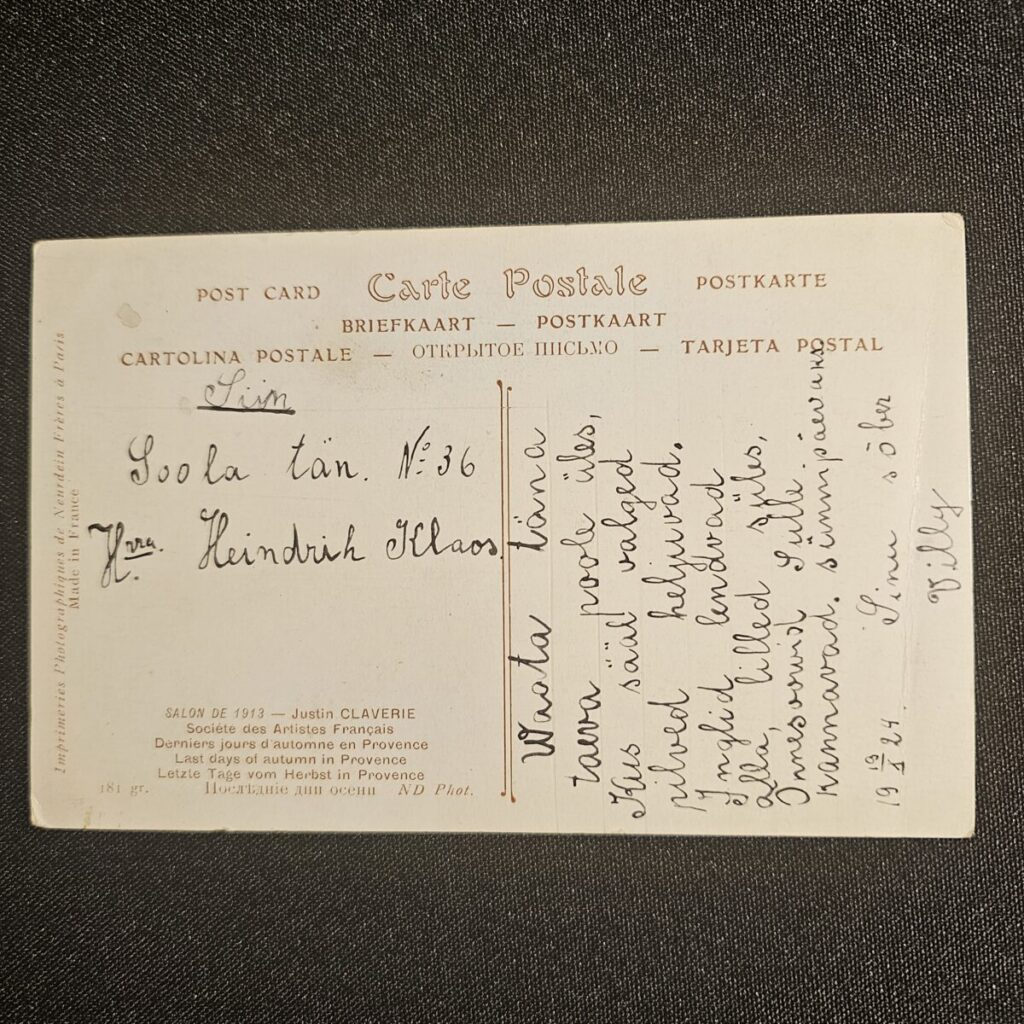 POST CARD Carte Postale POSTKARTE
BRIEFKAART — POSTKAART
CARTOLINA POSTALE — ОТКРЫТОЕ ПИСЬМО — TARJETA POSTAL
Siin
Soola tän. № 36
Hrra.
H. Heindrih Klaos
SALON DE 1913 — Justin CLAVERIE
Société des Artistes Français
Derniers jours d'automne en Provence
Last days of autumn in Provence
Letzte Tage vom Herbst in Provence
181 gr. Послѣднie дни осени ND Phot.
Imprimeries Photographiques de Neurdein Frères à Paris
Made in France
Waata täna
taeva poole üles,
Kus sääl valged
pilved heljuvad.
Inglid lendvad
alla, lilled süles,
Õnnesoovid Sulle
kannavad. sünnipäevaks
19 19/X 24. Sinu sõber
Villy